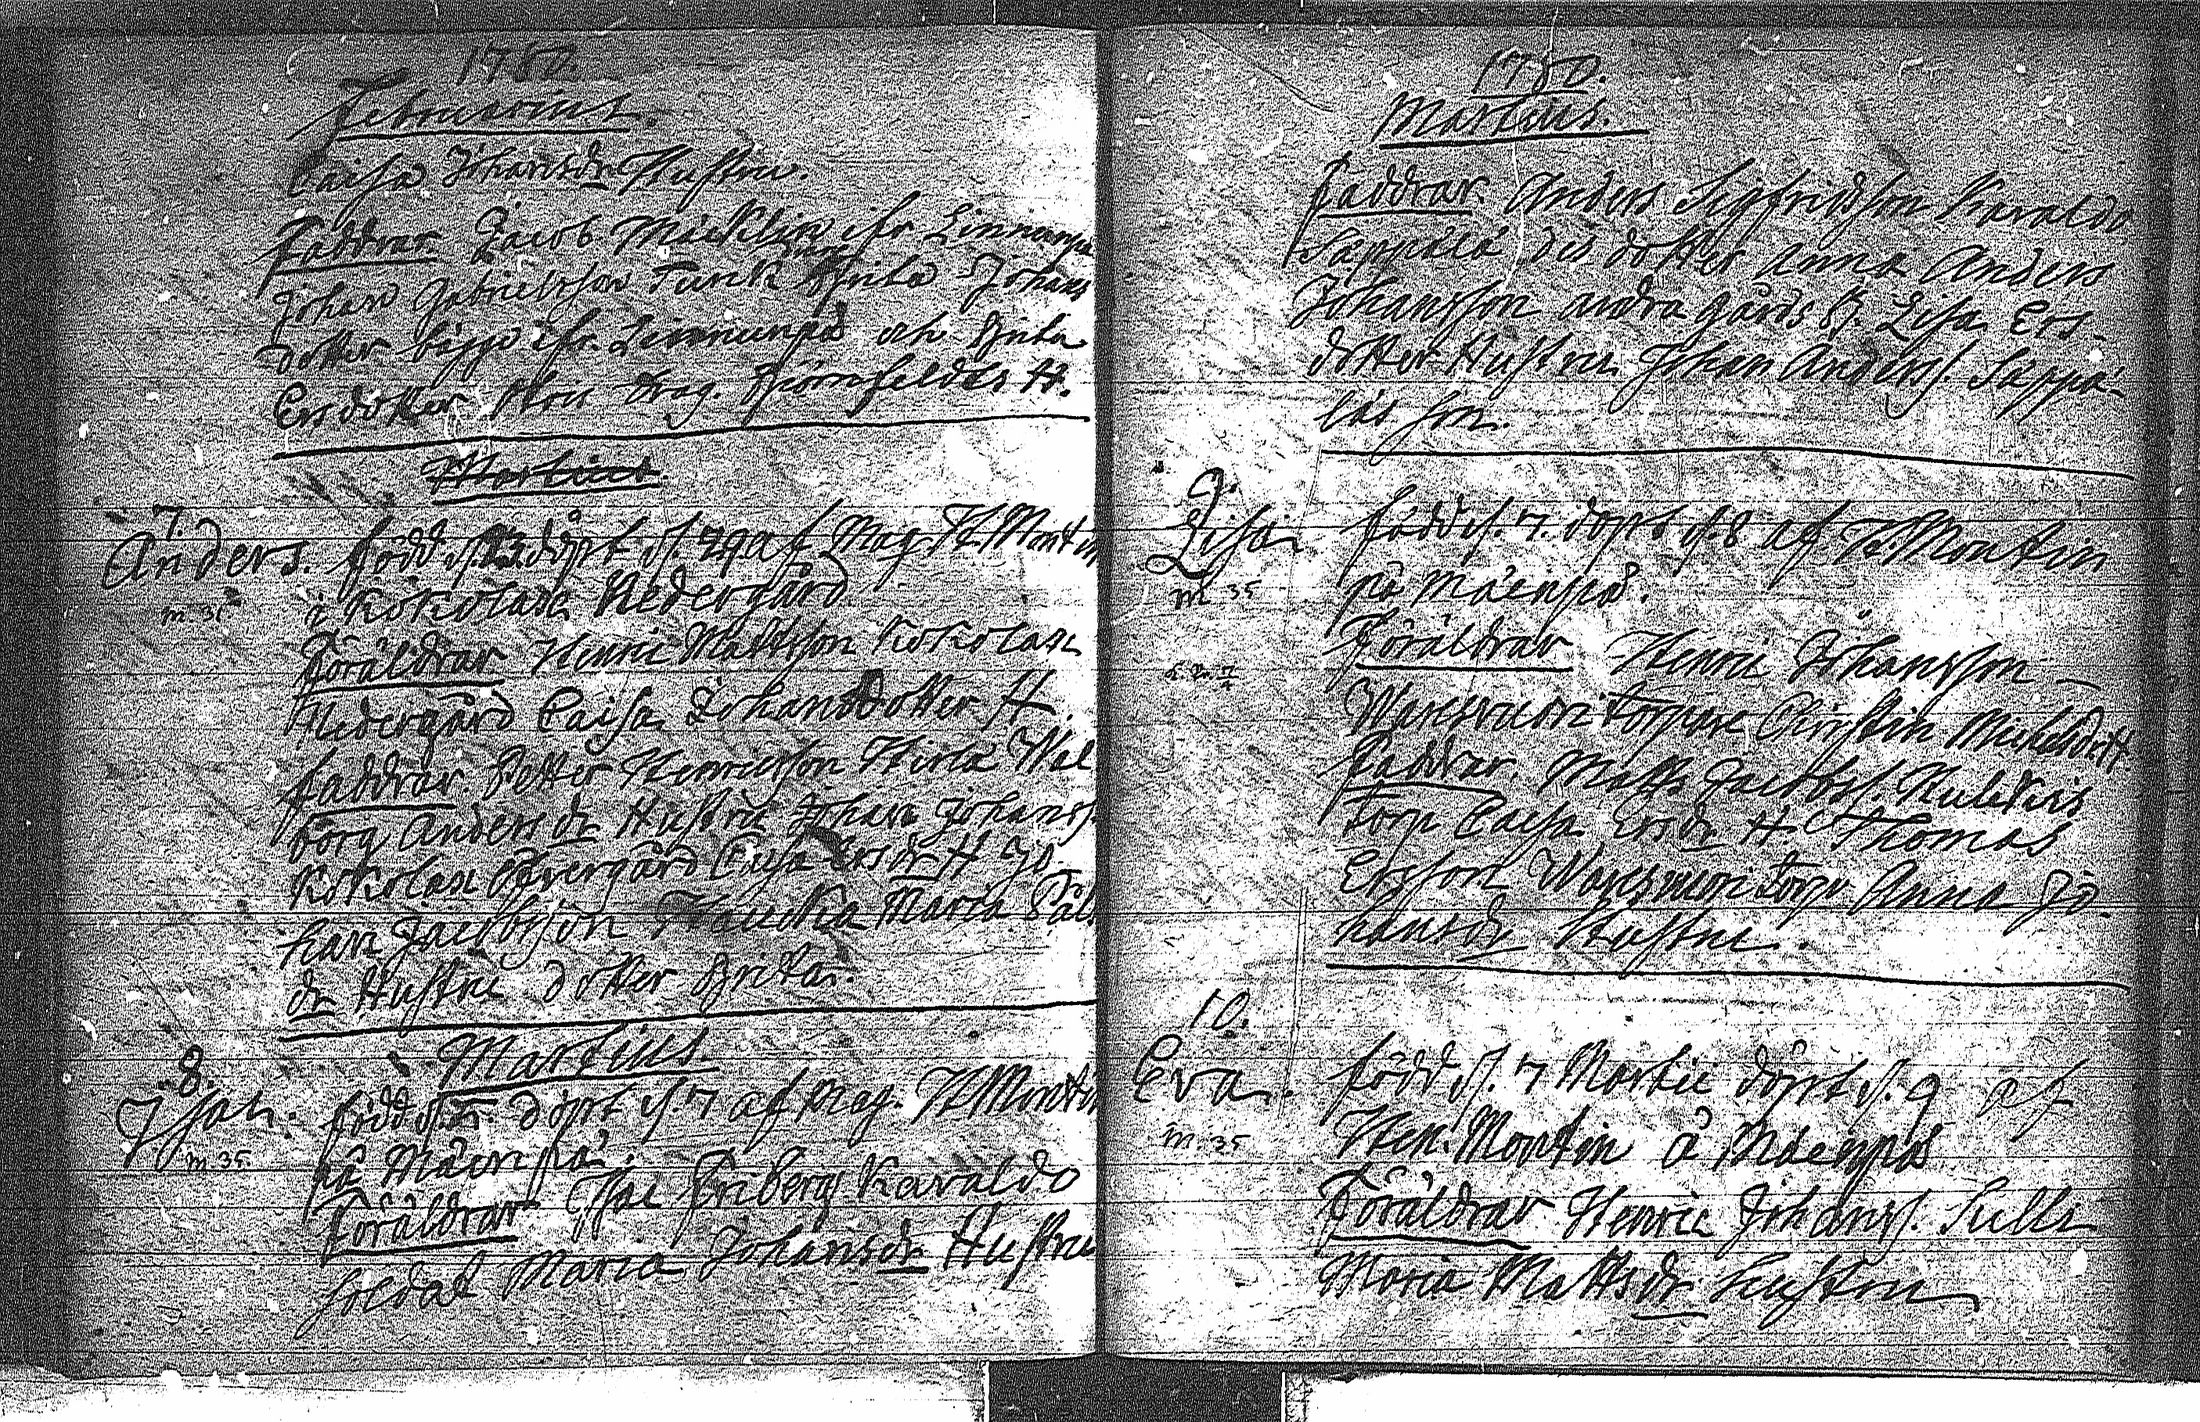 1780.
Februarius.
Caisa Johansdr Hustru.
Faddrar Jacob Micklin ifr Linnunpä
Johan Gabrielsson Turck Brita Johans
dotter ifr. Linnunpä och Brita
Ersdotter Drag. Björnfeldts H.
Martius.
7.
Anders. född d. 23 döpt d. 29 af Mag. H. Montin
m. 31
i Kokolax Nedergård
Föräldrar Henric Mattsson Kokolax
Nedergård Caisa Johansdotter H.
faddrar. Petter Henricsson Wal
borg Andersdr Hustru Johan Johanss.
Kokolax Öfvergård Caisa Ersdr H Jo
han Jacobsson Maria
dr Hustru dotter Brita.
Martius.
8.
Isac. född d. 5. döpt d. 7 af Mag. H Montin
m. 35.
på Mäenpä.
Föräldrar Isac Friberg Karaldo
soldat Maria Johansdr Hustru
1780.
Martius.
Faddrar. Anders Sigfridsson Karaldo
Säppälä des dotter Anna Anders
Johansson andra gårds b. Lisa Ers
dotter Hustru Johan Anderss. Säppä
läs son.
9.
Lisa född d. 7. döpt d. 8 af H Montin
m. 35
på Mäenpä.
Föräldrar Henric Johansson
torpare Christin Michelsdott
Faddrar. Matts Jacobss.
torp Caisa Ersdr H. Thomas
Ersson torp. Anna Jo
hansdr Hustru.
10.
Eva. född d. 7 Martii döpt d. 9 af
m. 35
Hen. Montin å Mäenpä
Föräldrar Henric Johanss. Sulls
Maria Mattsdr hustru